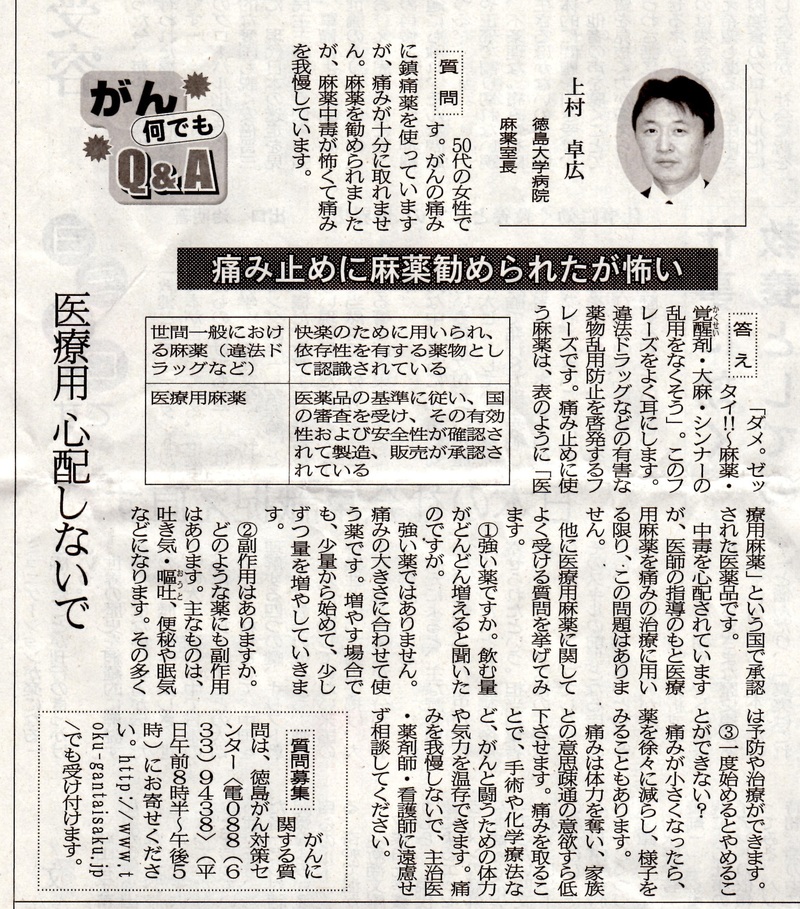 がん
何でも
Q&A
上村 卓広
徳島大学病院
麻薬室長
質問
50代の女性で
す。がんの痛み
に鎮痛薬を使っています
が、痛みが十分に取れませ
ん。麻薬を勧められました
が、麻薬中毒が怖くて痛み
を我慢しています。
痛み止めに麻薬勧められたが怖い
医療用 心配しないで
答え
「ダメ。ゼッ
タイ!!〜麻薬・
覚醒剤・大麻・シンナーの
かくせい
乱用をなくそう」。このフ
レーズをよく耳にします。
違法ドラッグなどの有害な
薬物乱用防止を啓発するフ
レーズです。痛み止めに使
う麻薬は、表のように「医
世間一般におけ
る麻薬（違法ド
ラッグなど）
快楽のために用いられ、
依存性を有する薬物とし
て認識されている
医療用麻薬
医薬品の基準に従い、国
の審査を受け、その有効
性および安全性が確認さ
れて製造、販売が承認さ
れている
療用麻薬」という国で承認
された医薬品です。
中毒を心配されています
が、医師の指導のもと医療
用麻薬を痛みの治療に用い
る限り、この問題はありま
せん。
他に医療用麻薬に関して
よく受ける質問を挙げてみ
ます。
①強い薬ですか。飲む量
がどんどん増えると聞いた
のですが。
強い薬ではありません。
痛みの大きさに合わせて使
う薬です。増やす場合で
も、少量から始めて、少し
ずつ量を増やしていきま
す。
②副作用はありますか。
どのような薬にも副作用
はあります。主なものは、
吐き気・嘔吐、便秘や眠気
おうと
などになります。その多く
は予防や治療ができます。
③一度始めるとやめるこ
とができない？
痛みが小さくなったら、
薬を徐々に減らし、様子を
みることもあります。
痛みは体力を奪い、家族
との意思疎通の意欲すら低
下させます。痛みを取るこ
とで、手術や化学療法な
ど、がんと闘うための体力
や気力を温存できます。痛
みを我慢しないで、主治医
・薬剤師・看護師に遠慮せ
ず相談してください。
質問募集
がんに
関する質
問は、徳島がん対策セ
ンター〈電088（6
33）9438〉（平
日午前8時半〜午後5
時）にお寄せくださ
い。http://www.t
oku-gantaisaku.jp
/でも受け付けます。